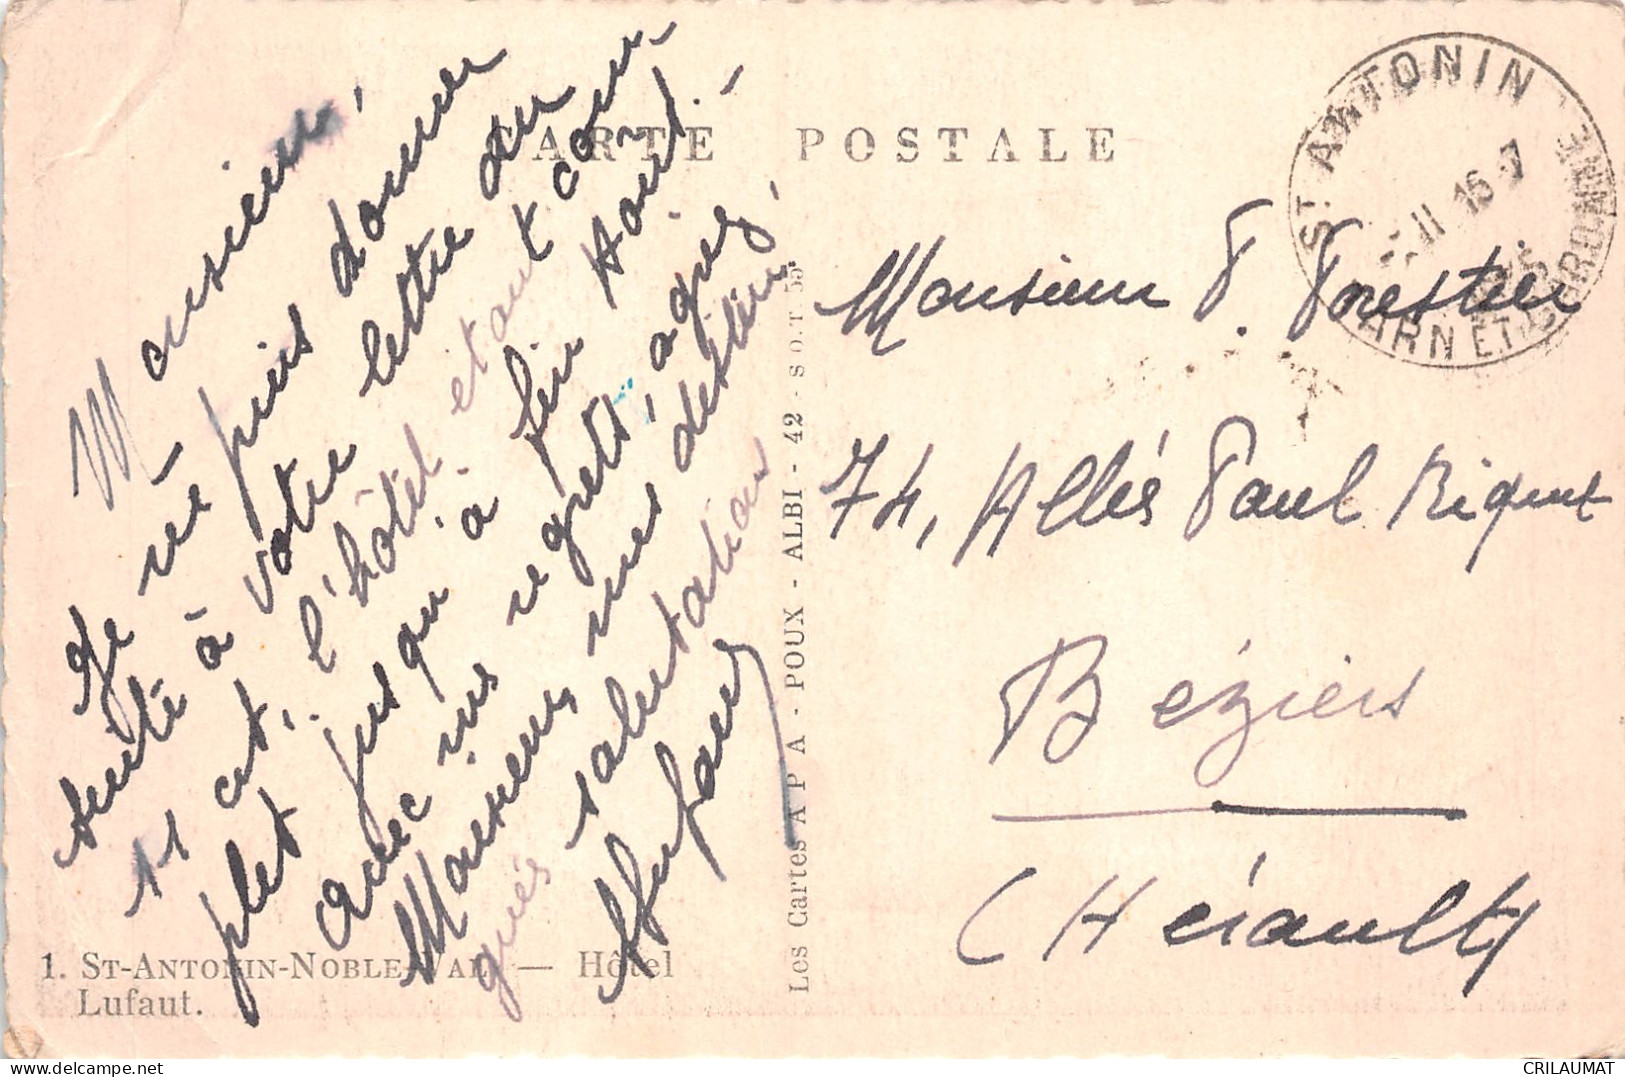 CARTE POSTALE
Monsieur,
Je ne puis donner
suite à votre lettre du
11 ct, l'hôtel étant com-
plet jusqu'à fin Août. -
Avec mes regrets, agréez,
Monsieur, mes distin
guées salutation
Mufaut
1. ST-ANTONIN-NOBLE-VAL — Hôtel
Lufaut.
Les Cartes A P A - POUX - ALBI - 42 - S.O.T. 55
ST ANTONIN
TARN ET GARONNE
11 16-7
Monsieur P. Forestier
74, Allés Paul Riquet
Béziers
(Hérault)
CRILAUMAT